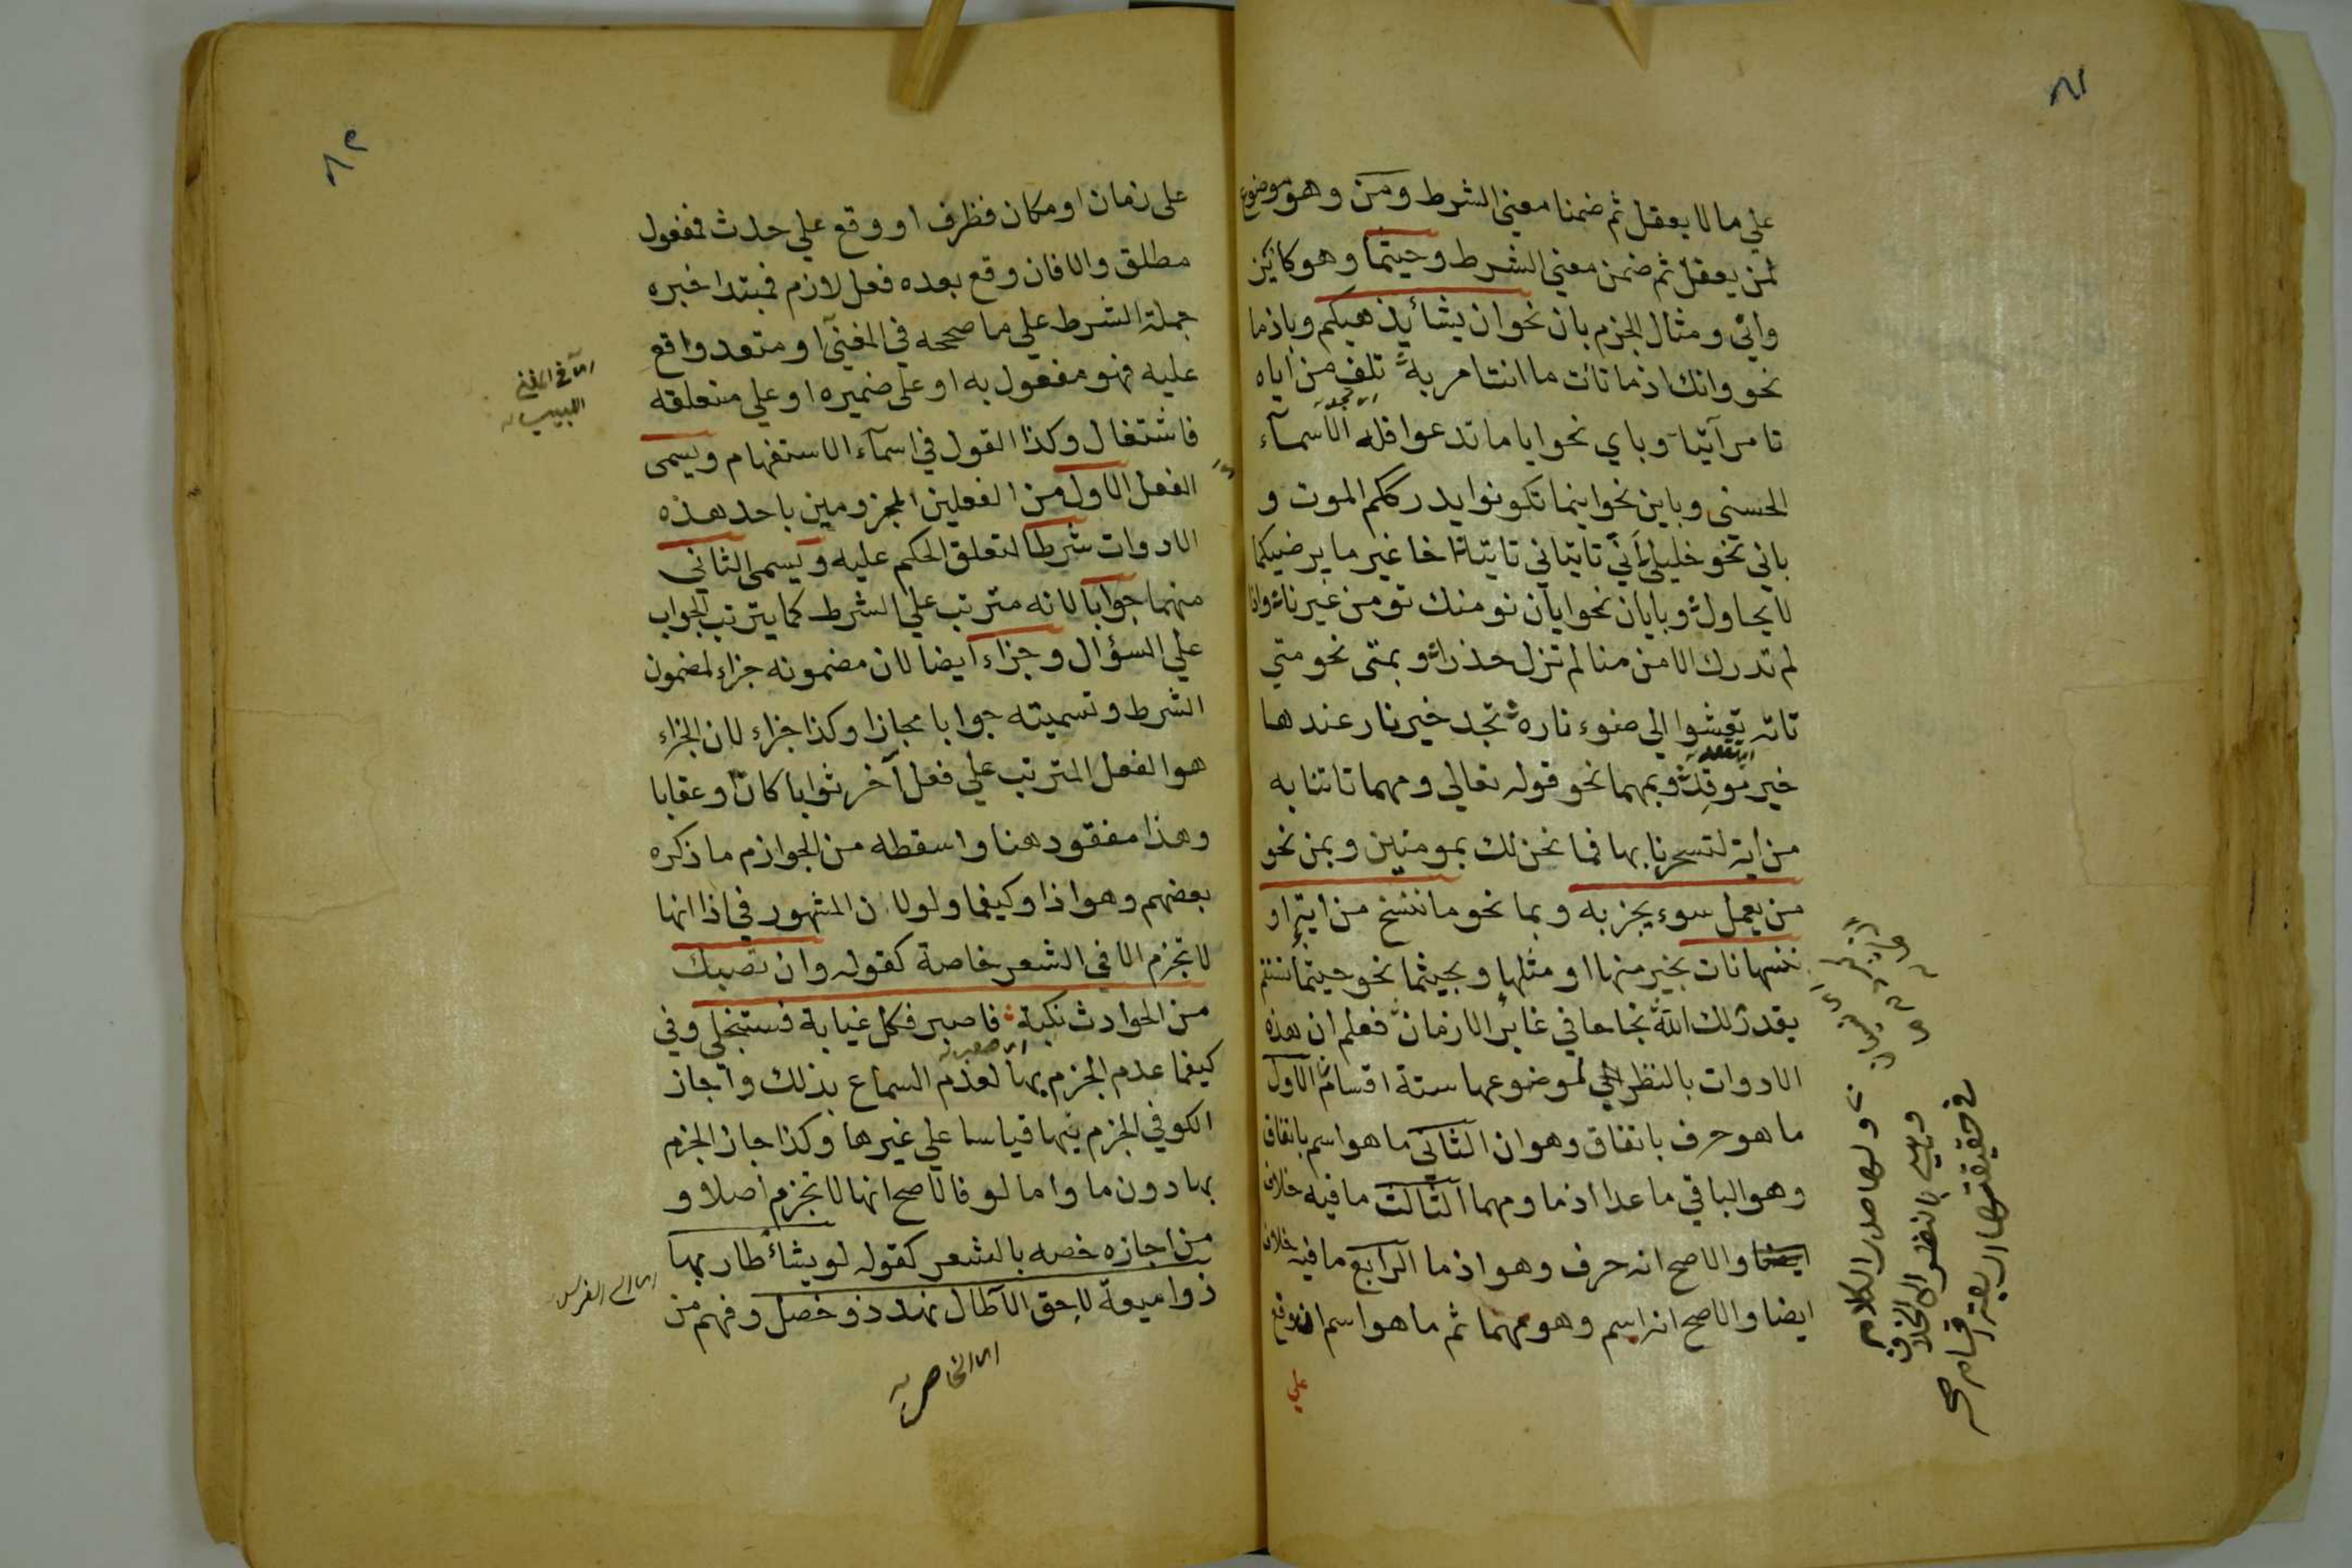 ٨١
علي ما لا يعقل ثم ضمنا معني الشرط ومن وهو موضوع
لمن يعقل ثم ضمن معني الشرط وحيثما وهو كاين
واني ومثال الجزم بان نحو ان يشأ يذهبكم وباذما
نحو وانك اذ ما تات ما انت امر به تلف من اياه
تامر آتيا وباي نحو ايا ما تدعوا فله الاسمآء
الحسنى وباين نحو اينما تكونوا يدرككم الموت و
باني نحو خليلي أني تاتياني تاتيا اخا غير ما يرضيكما
لا يحاول وبايان نحو ايان نومنك تومن غيرنا واذا
لم تدرك الامن منا لم تزل حذرا وبمتى نحو متي
تاته تعشوا الي ضوء ناره تجد خير نار عندها
خير موقد وبمهما نحو قوله تعالي ومهما تاتنا به
من اية لتسحرنا بها فما نحن لك بمومنين وبمن نحو
من يعمل سوء يجز به وبما نحو ما ننسخ من اية او
ننسها نات بخير منها او مثلها وبحيثما نحو حيثما تستقم
يقدر لك الله نجاحا في غابر الازمان فعلم ان هذه
الادوات بالنظر الي لموضوعها ستة اقسام الاول
ما هو حرف باتفاق وهو ان الثاني ما هو اسم باتفاق
وهو الباقي ما عدا اذما ومهما الثالث ما فيه خلاف
والاصح انه حرف وهو اذ ما الرابع ما فيه خلاف
ايضا والاصح انه اسم وهو مهما ثم ما هو اسم ان وقع
علي
ولها صدر الكلام
وهي بالنظر الي الخلاف
في حقيقتها اربعة اقسام صح
٨٢
على زمان او مكان فظرف او وقع علي حدث فمفعول
مطلق والا فان وقع بعده فعل لازم فمبتدا خبره
جملة الشرط علي ما صححه في المغني او متعد واقع
عليه فهو مفعول به او على ضميره او علي متعلقه
فاشتغال وكذا القول في اسمآء الاستفهام ويسمى
الفعل الاول من الفعلين المجزومين باحد هذه
الادوات شرطا لتعلق الحكم عليه ويسمى الثاني
منهما جوابا لانه مترتب علي الشرط كما يترتب الجواب
علي السؤال وجزاء ايضا لان مضمونه جزاء لمضمون
الشرط وتسميته جوابا مجازا وكذا جزاء لان الجزاء
هو الفعل المترتب علي فعل آخر ثوابا كان او عقابا
وهذا مفقود هنا واسقطه من الجوازم ما ذكره
بعضهم وهو اذا وكيفما ولو لان المشهور في اذا انها
لا تجزم الا في الشعر خاصة كقوله وان تصبك
من الحوادث نكبة فاصبر فكل غيابة فستنجلي وفي
كيفما عدم الجزم بها لعدم السماع بذلك واجاز
الكوفي الجزم بها قياسا علي غيرها وكذا جاز الجزم
بها دون ما واما لو فالاصح انها لا تجزم اصلا و
من اجازه خصه بالشعر كقوله لو يشأ طار بها
ذو ميعة لاحق الآطال نهد ذو خصل وفهم من
اي في المغني
اللبيب
اي الفرس
اي الخاصرة